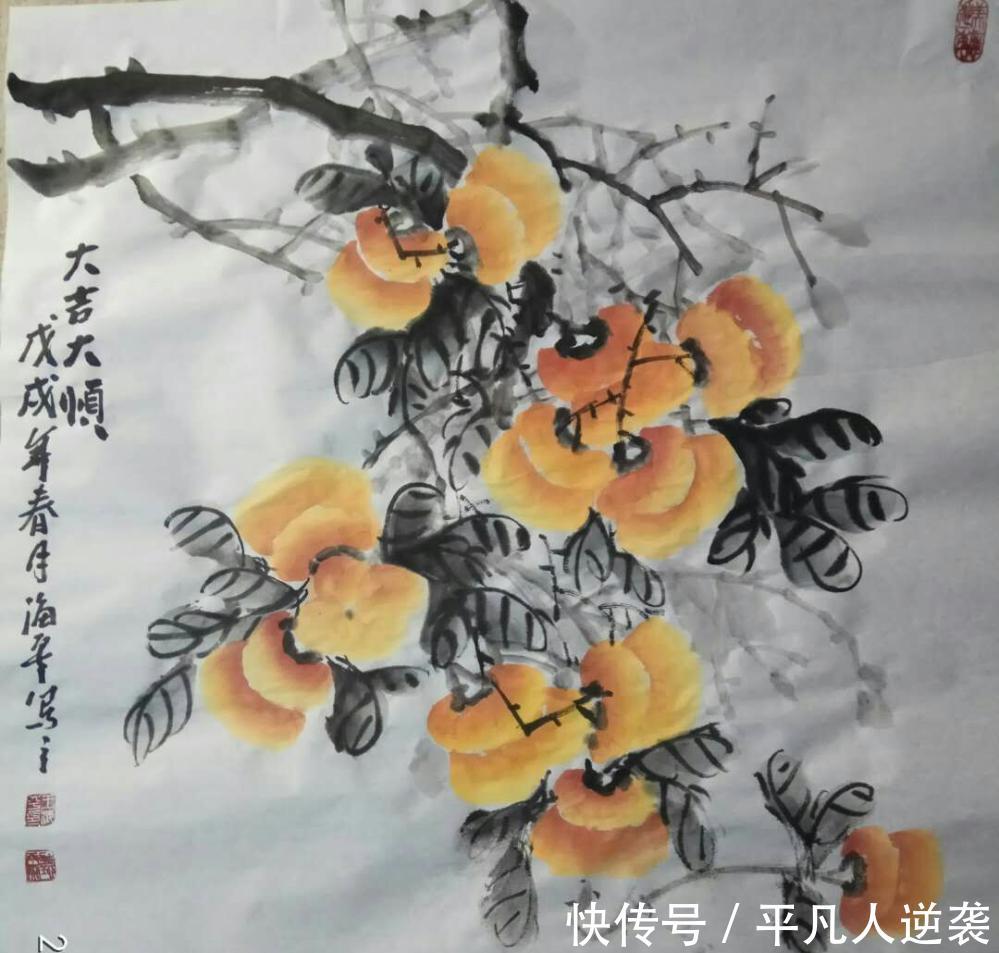 大吉大順
戊戌年春月海平写之
快传号 / 平凡人逆袭